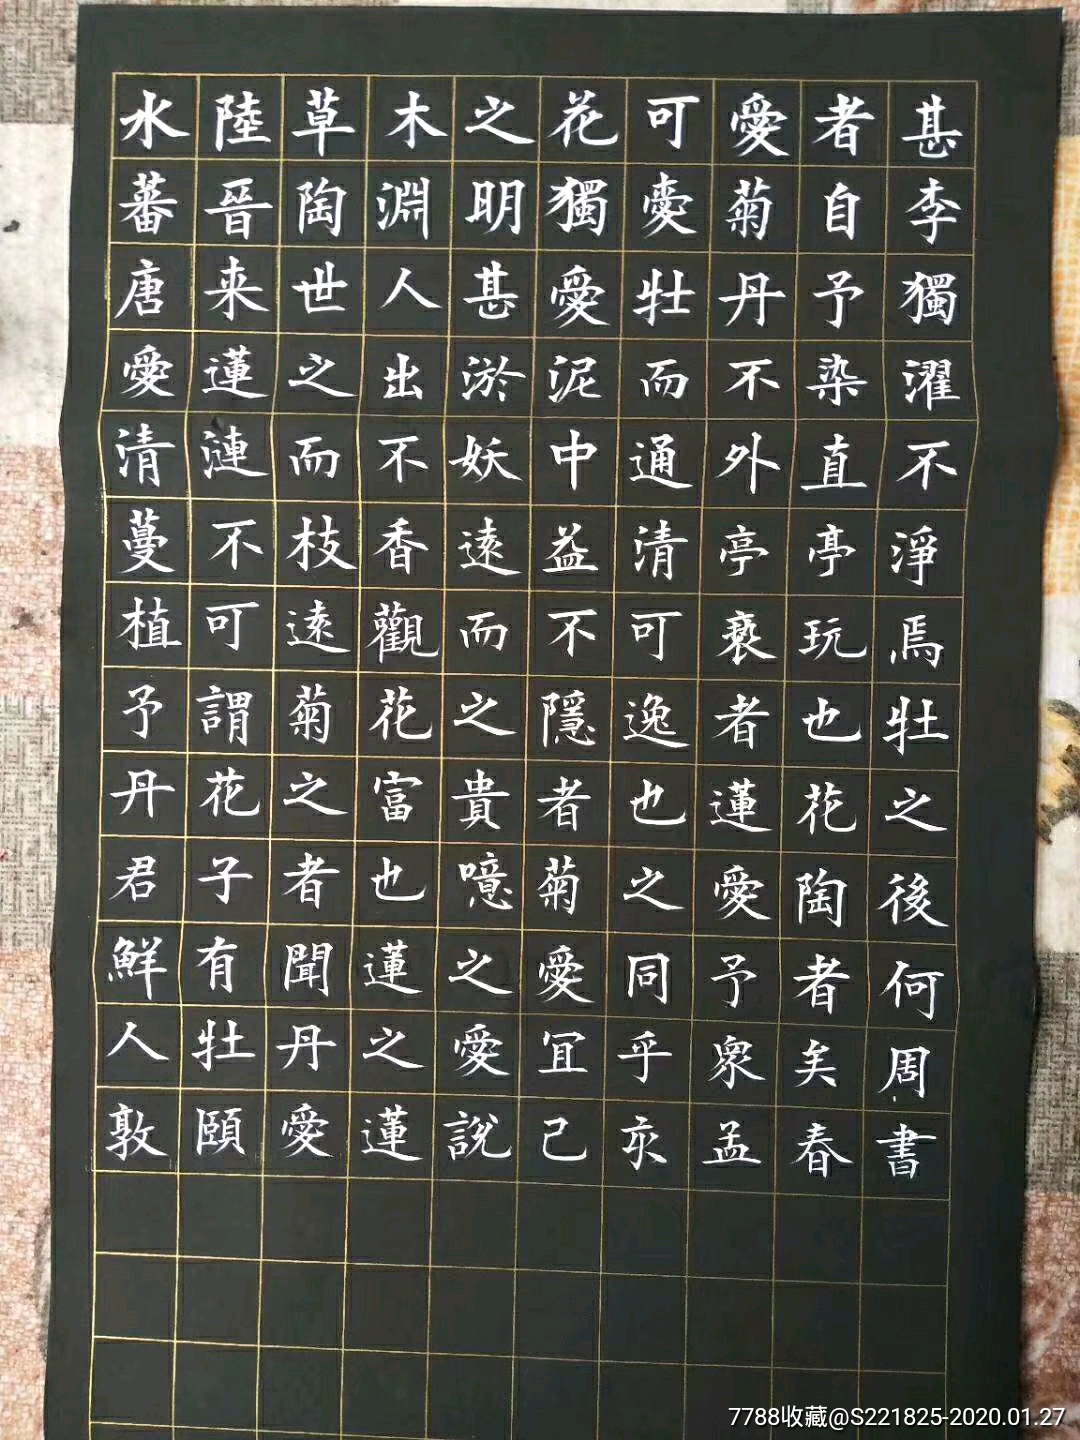 水陸草木之花可愛者甚
蕃晉陶淵明獨愛菊自李
唐来世人甚愛牡丹予獨
愛蓮之出淤泥而不染濯
清漣而不妖中通外直不
蔓不枝香遠益清亭亭淨
植可遠觀而不可褻玩焉
予謂菊花之隱逸者也牡
丹花之富貴者也蓮花之
君子者也噫菊之愛陶後
鮮有聞蓮之愛同予者何
人牡丹之愛宜乎眾矣周
敦頤愛蓮說己亥孟春書
7788收藏@S221825-2020.01.27